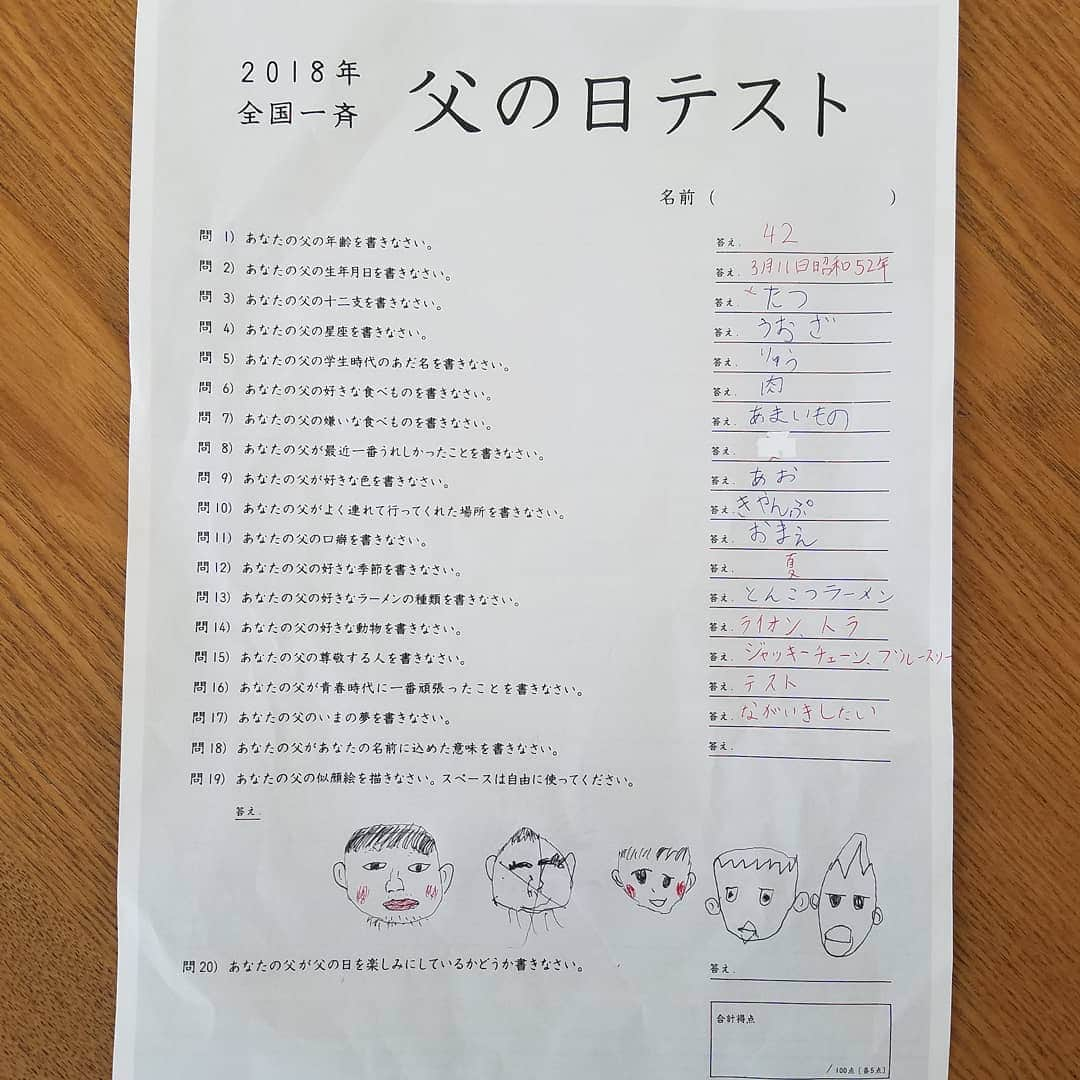 2018年
全国一斉
父の日テスト
名前 (                    )
問 1) あなたの父の年齢を書きなさい。 答え. 42
問 2) あなたの父の生年月日を書きなさい。 答え. 3月11日昭和52年
問 3) あなたの父の十二支を書きなさい。 答え. たつ
問 4) あなたの父の星座を書きなさい。 答え. うおざ
問 5) あなたの父の学生時代のあだ名を書きなさい。 答え. りゅう
問 6) あなたの父の好きな食べものを書きなさい。 答え. 肉
問 7) あなたの父の嫌いな食べものを書きなさい。 答え. あまいもの
問 8) あなたの父が最近一番うれしかったことを書きなさい。 答え.
問 9) あなたの父が好きな色を書きなさい。 答え. あお
問10) あなたの父がよく連れて行ってくれた場所を書きなさい。 答え. きゃんぷ
問11) あなたの父の口癖を書きなさい。 答え. おまえ
問12) あなたの父の好きな季節を書きなさい。 答え. 夏
問13) あなたの父の好きなラーメンの種類を書きなさい。 答え. とんこつラーメン
問14) あなたの父の好きな動物を書きなさい。 答え. ライオン、トラ
問15) あなたの父の尊敬する人を書きなさい。 答え. ジャッキーチェーン、ブルースリー
問16) あなたの父が青春時代に一番頑張ったことを書きなさい。 答え. テスト
問17) あなたの父のいまの夢を書きなさい。 答え. ながいきしたい
問18) あなたの父があなたの名前に込めた意味を書きなさい。 答え.
問19) あなたの父の似顔絵を描きなさい。スペースは自由に使ってください。
答え.
問20) あなたの父が父の日を楽しみにしているかどうか書きなさい。 答え.
合計得点
/ 100点 [各5点]